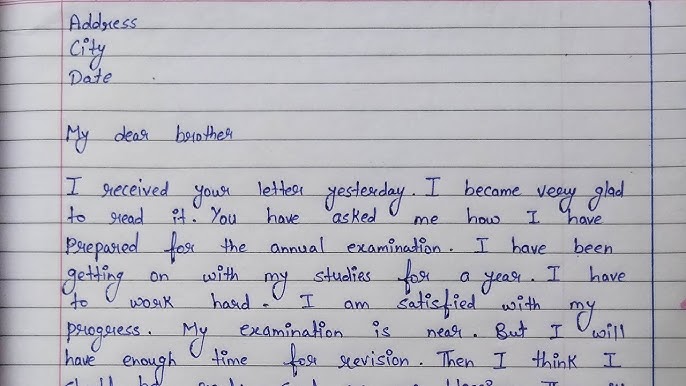 Address
City
Date
My dear brother
I received your letter yesterday. I became very glad
to read it. You have asked me how I have
prepared for the annual examination. I have been
getting on with my studies for a year. I have
to work hard. I am satisfied with my
progress. My examination is near. But I will
have enough time for revision. Then I think I